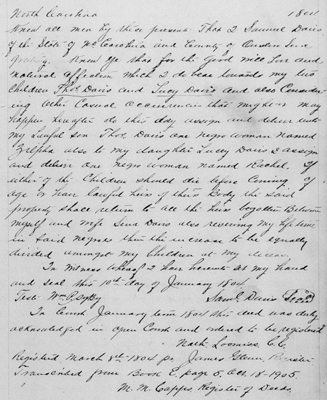 North Carolina 1804
Know all men by these presents That I Samuel Davis
of the State of No Carolina and County of Onslow Send
greeting. Know ye that for the good will Love and
natural affection which I do bear towards my two
Children Thos Davis and Lucy Davis and also Consider-
ing other Casual occurrences that might or may
happen hereafter do this day assign and deliver unto
my lawful son Thos Davis one negro woman named
also to my daughter Lucy Davis I assign
and deliver one negro woman named Rachel. If
either of the Children should die before Coming of
age or have lawful heirs of their body the said
property shall return to all the heirs begotten Between
myself and wife Davis also reserving my life time
in said negroes then the increase to be equally
divided amongst my Children at my decease
In witness whereof I have hereunto set my hand
and seal this 10th day of January 1804.
Test: Wm Saml Davis Seal
In Court January term 1804 this deed was duly
acknowledged in open Court and ordered to be registered
Nath Loomiss C.C.
Registered March 8th 1804 pr James Glenn Register
Transcribed from Book E, page 5, Oct. 18-1905
M. M. Capps, Register of Deeds